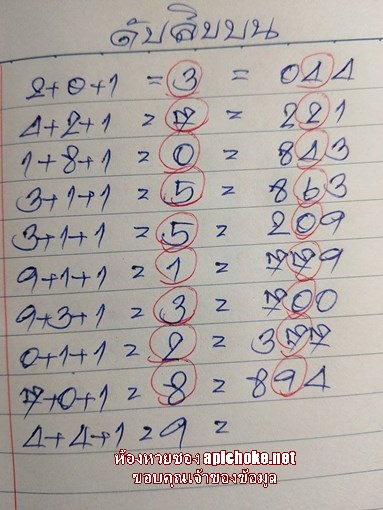 ดับสิบบน
2+0+1 = 3 = 044
4+2+1 = 7 = 221
1+8+1 = 0 = 843
3+1+1 = 5 = 863
3+1+1 = 5 = 209
9+1+1 = 1 = 779
9+3+1 = 3 = 700
0+1+1 = 2 = 377
7+0+1 = 8 = 894
4+4+1 = 9 =
ห้องหวยซอง apichoke.net
ขอบคุณเจ้าของข้อมูล